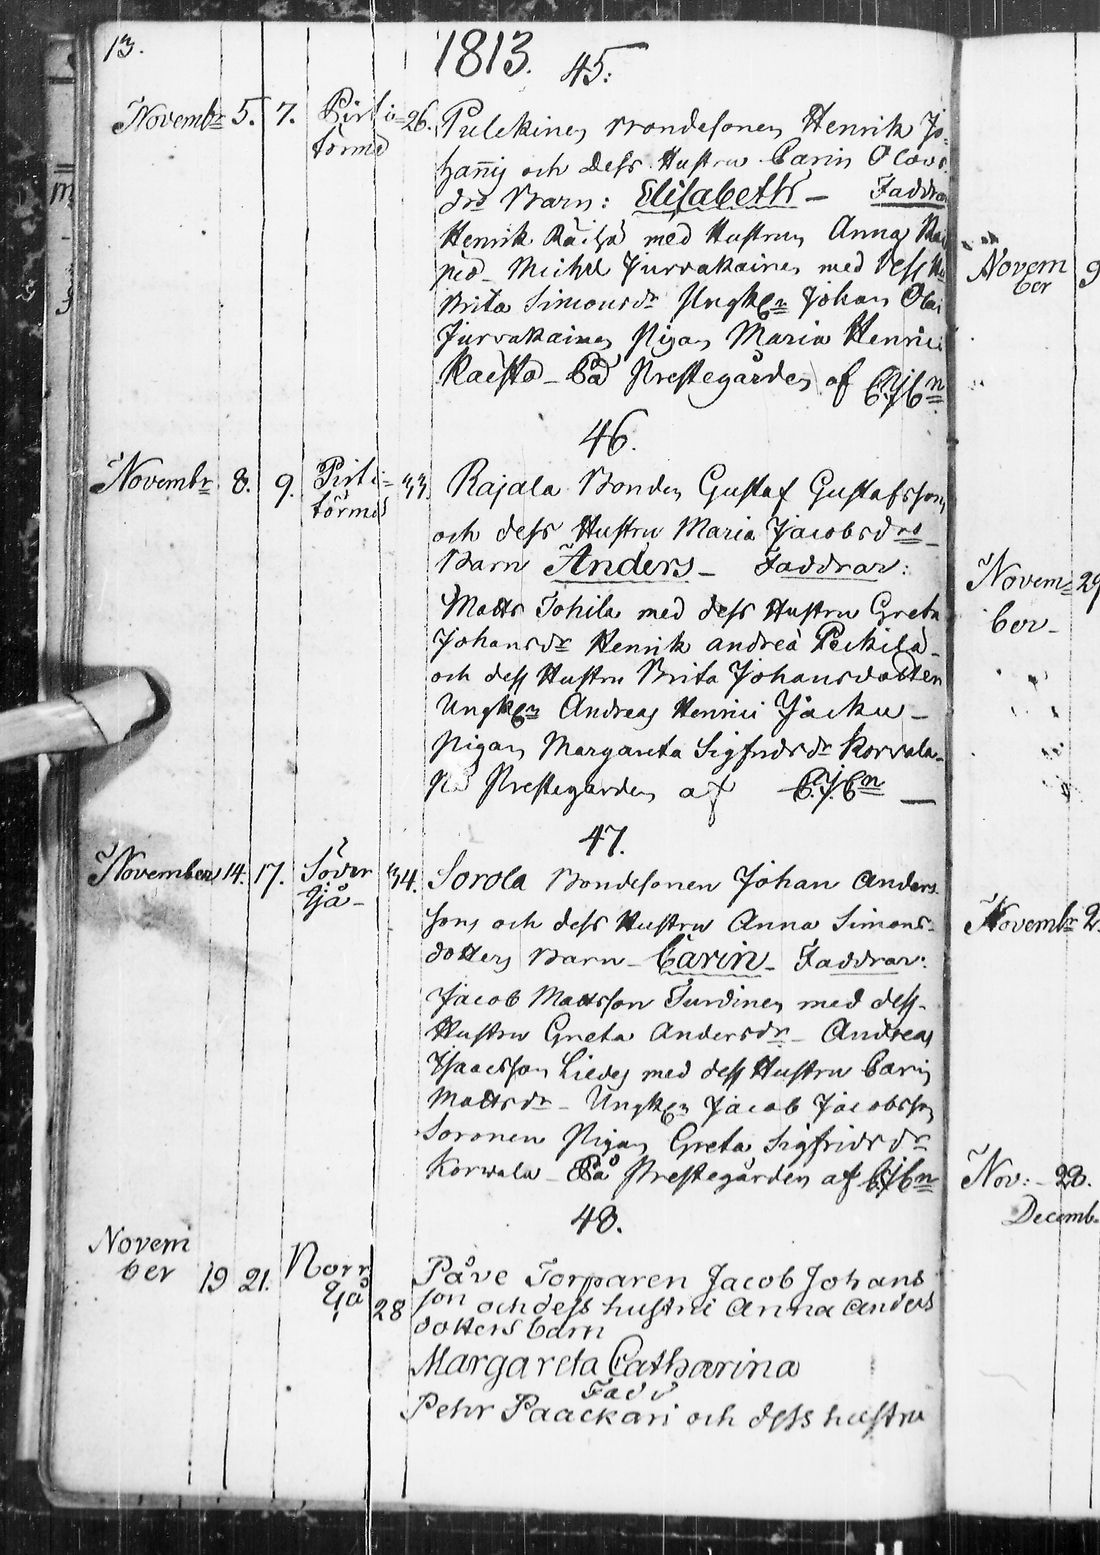 13.
1813.
45:
Novembr 5. 7. Pirti=
törmä
26. Pulckinen Bondesonen Henrik Jo-
hannis och dess Hustru Carin Olovs
drs Barn: Elisabeth - Faddrar
Henrik Räisä med Hustrun Anna
Michel Jurvakainen med dess
Brita Simonsdr Ungkn Johan Olai
Jurvakainen Pigan Maria Henrici
Raesto - På Prestegården af C.J.Cn
46.
Novembr 8. 9. Pirti=
törmä
33. Rajala Bonden Gustaf Gustafsson
och dess Hustru Maria Jacobsdrs
Barn Anders - Faddrar:
Matts Tohila med dess Hustru Greta
Johansdr Henrik andreä Peckilä -
och dess Hustru Brita Johansdotter
Ungkn Andreas Henrici Jäcku -
Pigan Margareta Sigfridsdr Korvala -
På Prestegården af C.J.Cn
47.
November 14. 17. Söder
Yjå -
34. Sorola Bondesonen Johan Anders-
sons och dess Hustru Anna Simons-
dotters Barn - Carin - Faddrar:
Jacob Mattsson Turdinen med dess
Hustru Greta Andersdr - Andreas
Isaacsson Liedes med dess Hustru Carin
Mattsdr - Ungkn Jacob Jacobsson
Soronen Pigan Greta Sigfridsdr
Korwala - På Prestegården af C.J.Cn
48.
Novem
ber 19 21. Norr
Yjå 28
Påve Torparen Jacob Johans
son och dess hustru Anna Anders
dotters barn
Margareta Catharina
Fadd
Pehr Paackari och dess hustru
Novem
ber 9
Novem= 29
ber -
Novembr 2
Nov: - 28.
Decemb